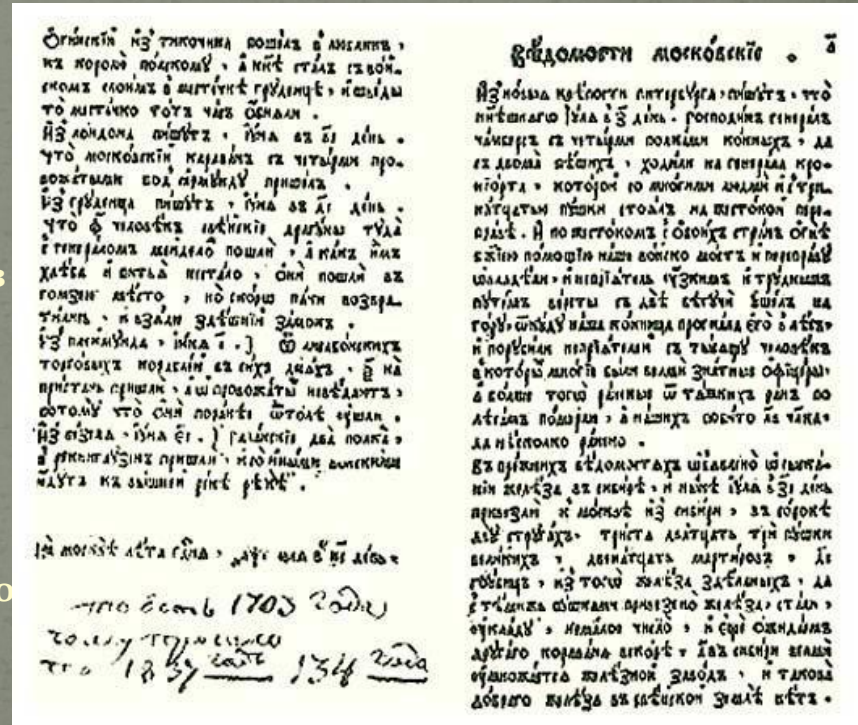 Огинскїй из̾ тикочина пошелъ в люблинъ ,
къ королю полскому , а ннѣ сталъ съ вои_
скомъ своимъ в мѣстечкѣ грѹденцѣ , и шведы
то мѣстечко тотъ часъ
Из̾ лондона пишѹтъ , їѹна въ день .
что московскїй караванъ съ четырми про_
вожатыми под̾ пришелъ .
Из̾ грѹденца пишѹтъ , їѹна въ день .
что человѣкъ свѣйскїе драгѹны тѹда
с генераломъ пошли , а какъ имъ
хлѣба и питья нестало , они пошли въ
мѣсто , но скорѡ паки возвра_
тились , и взяли здѣшнїй замокъ .
Из̾ , їѹна ї . Ѿ
торговыхъ кораблей въ сихъ дняхъ , на
пристань пришли , а ѡ провожатыхъ невѣдаютъ ,
потомѹ что они поранѣе ѿтолѣ ѹшли .
Из̾ , їѹна еї . два полка ,
пришли , и со иными воинскими
идѹтъ къ вышней рекѣ рейнѣ .
На москвѣ лѣта гдня , ҂аѱг їѹля в день
что есть 1703 года
чемѹ
что 1837 годъ 134 года
в
о
Вѣдомости московскїе .
Из̾ новыя крѣпости питербѹрга , пишѹтъ , что
нынѣшнягѡ їѹля в день . господинъ генералъ
чамберъ съ четырми полками конныхъ , да
съ двома пѣшихъ , ходили на генерала кро_
нїорта , которой со многими людми и с три_
натцатью пѹшки стоялъ на жестокой пере_
правѣ . И по жестокомъ с обоихъ странъ огнѣ
бжїею помощїю наше воиско мостъ и переправѹ
ѡвладѣли , и непрїятель ѹзкимъ и трѹднымъ
пѹтемъ версты съ двѣ бегѹчи ѹшелъ на
горѹ , ѿкѹдѹ наша конница прогнала его в лѣсъ ,
и порѹбили непрїятелей съ тысящѹ человѣкъ
в которыхъ многїе были велми знатные офицеры ,
а болше тогѡ раненые ѿ тяжкихъ ранъ по
лѣсамъ померли , а нашихъ побито челѡ_
да нѣсколко ранено .
Въ прежнихъ вѣдомостяхъ ѡбявлено ѡ сыска_
нїи желѣза въ сибирѣ , и ннѣ їѹля в день
привезли к москвѣ из̾ сибири , въ сорокѣ
дву стрѹгахъ , триста дватцать три пѹшки
великихъ , двенатцать мартировъ ,
гоѹбицъ , из̾ тогѡ желѣза здѣланыхъ , да
с тѣмижъ пѹшками привезено желѣза , стали ,
ѹкладѹ , немалое число , и еще ожидаемъ
дрѹгаго коравана вскорѣ , а въ сибири велми
ѹмножается желѣзной заводъ , и такова
доброго желѣза въ свѣйской землѣ нѣтъ .